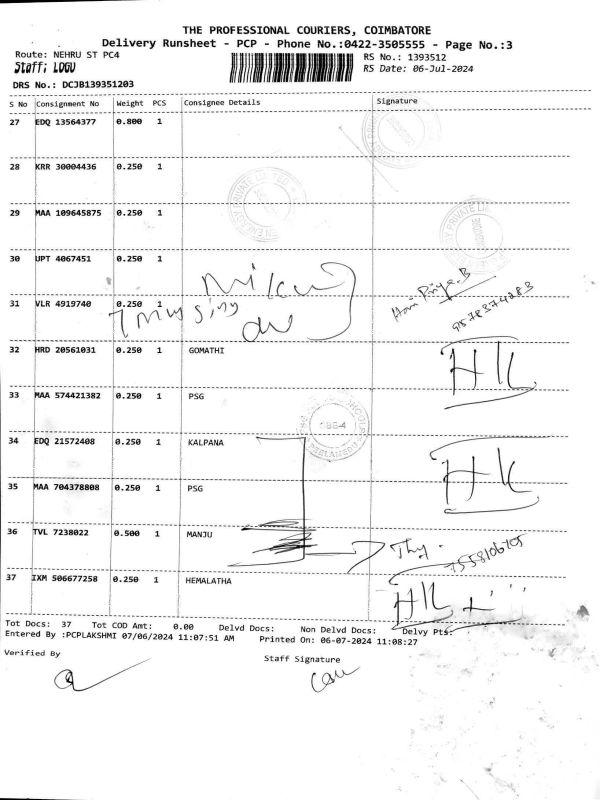 THE PROFESSIONAL COURIERS, COIMBATORE
Delivery Runsheet - PCP - Phone No.:0422-3505555 - Page No.:3
Route: NEHRU ST PC4 RS No.: 1393512
Staff: LOGU RS Date: 06-Jul-2024
DRS No.: DCJB139351203
S No Consignment No Weight PCS Consignee Details Signature
27 EDQ 13564377 0.800 1
28 KRR 30004436 0.250 1
29 MAA 109645875 0.250 1
30 UPT 4067451 0.250 1
Hari Priya.B
31 VLR 4919740 0.250 1
9578374283
32 HRD 20561031 0.250 1 GOMATHI
33 MAA 574421382 0.250 1 PSG
34 EDQ 21572408 0.250 1 KALPANA
35 MAA 704378808 0.250 1 PSG
36 TVL 7238022 0.500 1 MANJU
37 IXM 506677258 0.250 1 HEMALATHA
Tot Docs: 37 Tot COD Amt: 0.00 Delvd Docs: Non Delvd Docs: Delvy Pts:
Entered By :PCPLAKSHMI 07/06/2024 11:07:51 AM Printed On: 06-07-2024 11:08:27
Verified By Staff Signature